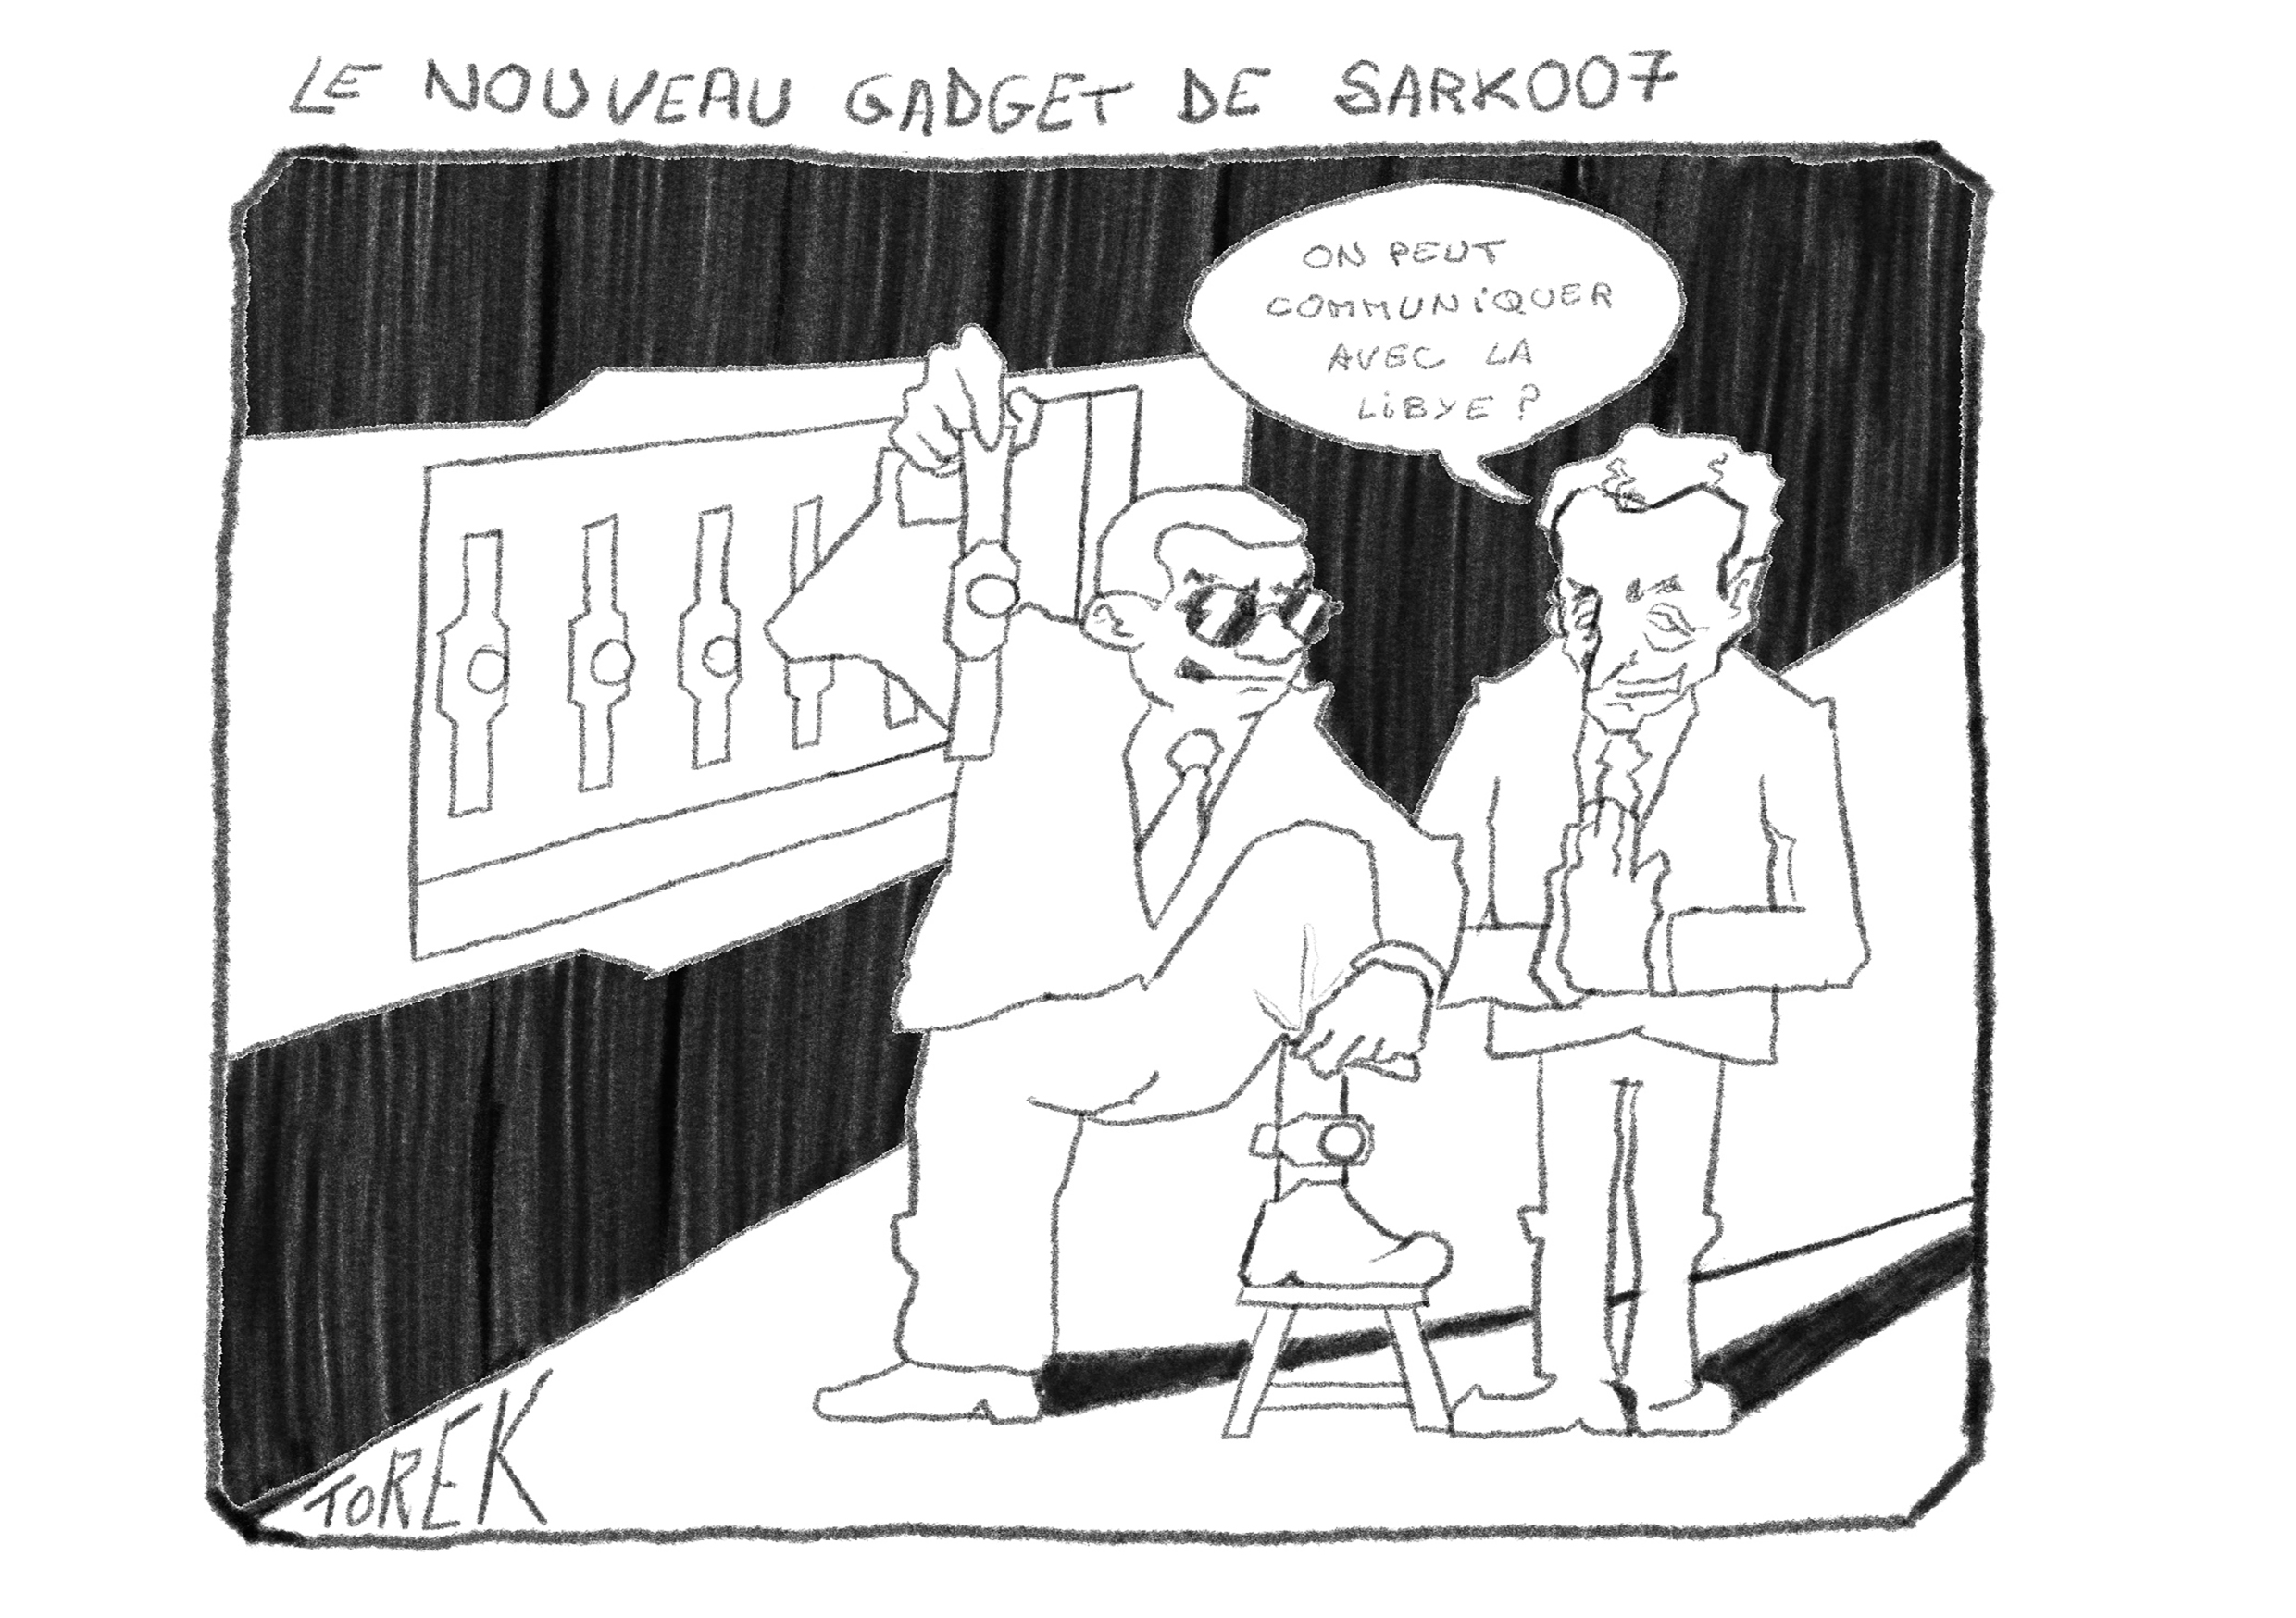 LE NOUVEAU GADGET DE SARKOO7
ON PEUT
COMMUNiQUER
AVEC LA
LiBYE ?
TOREK